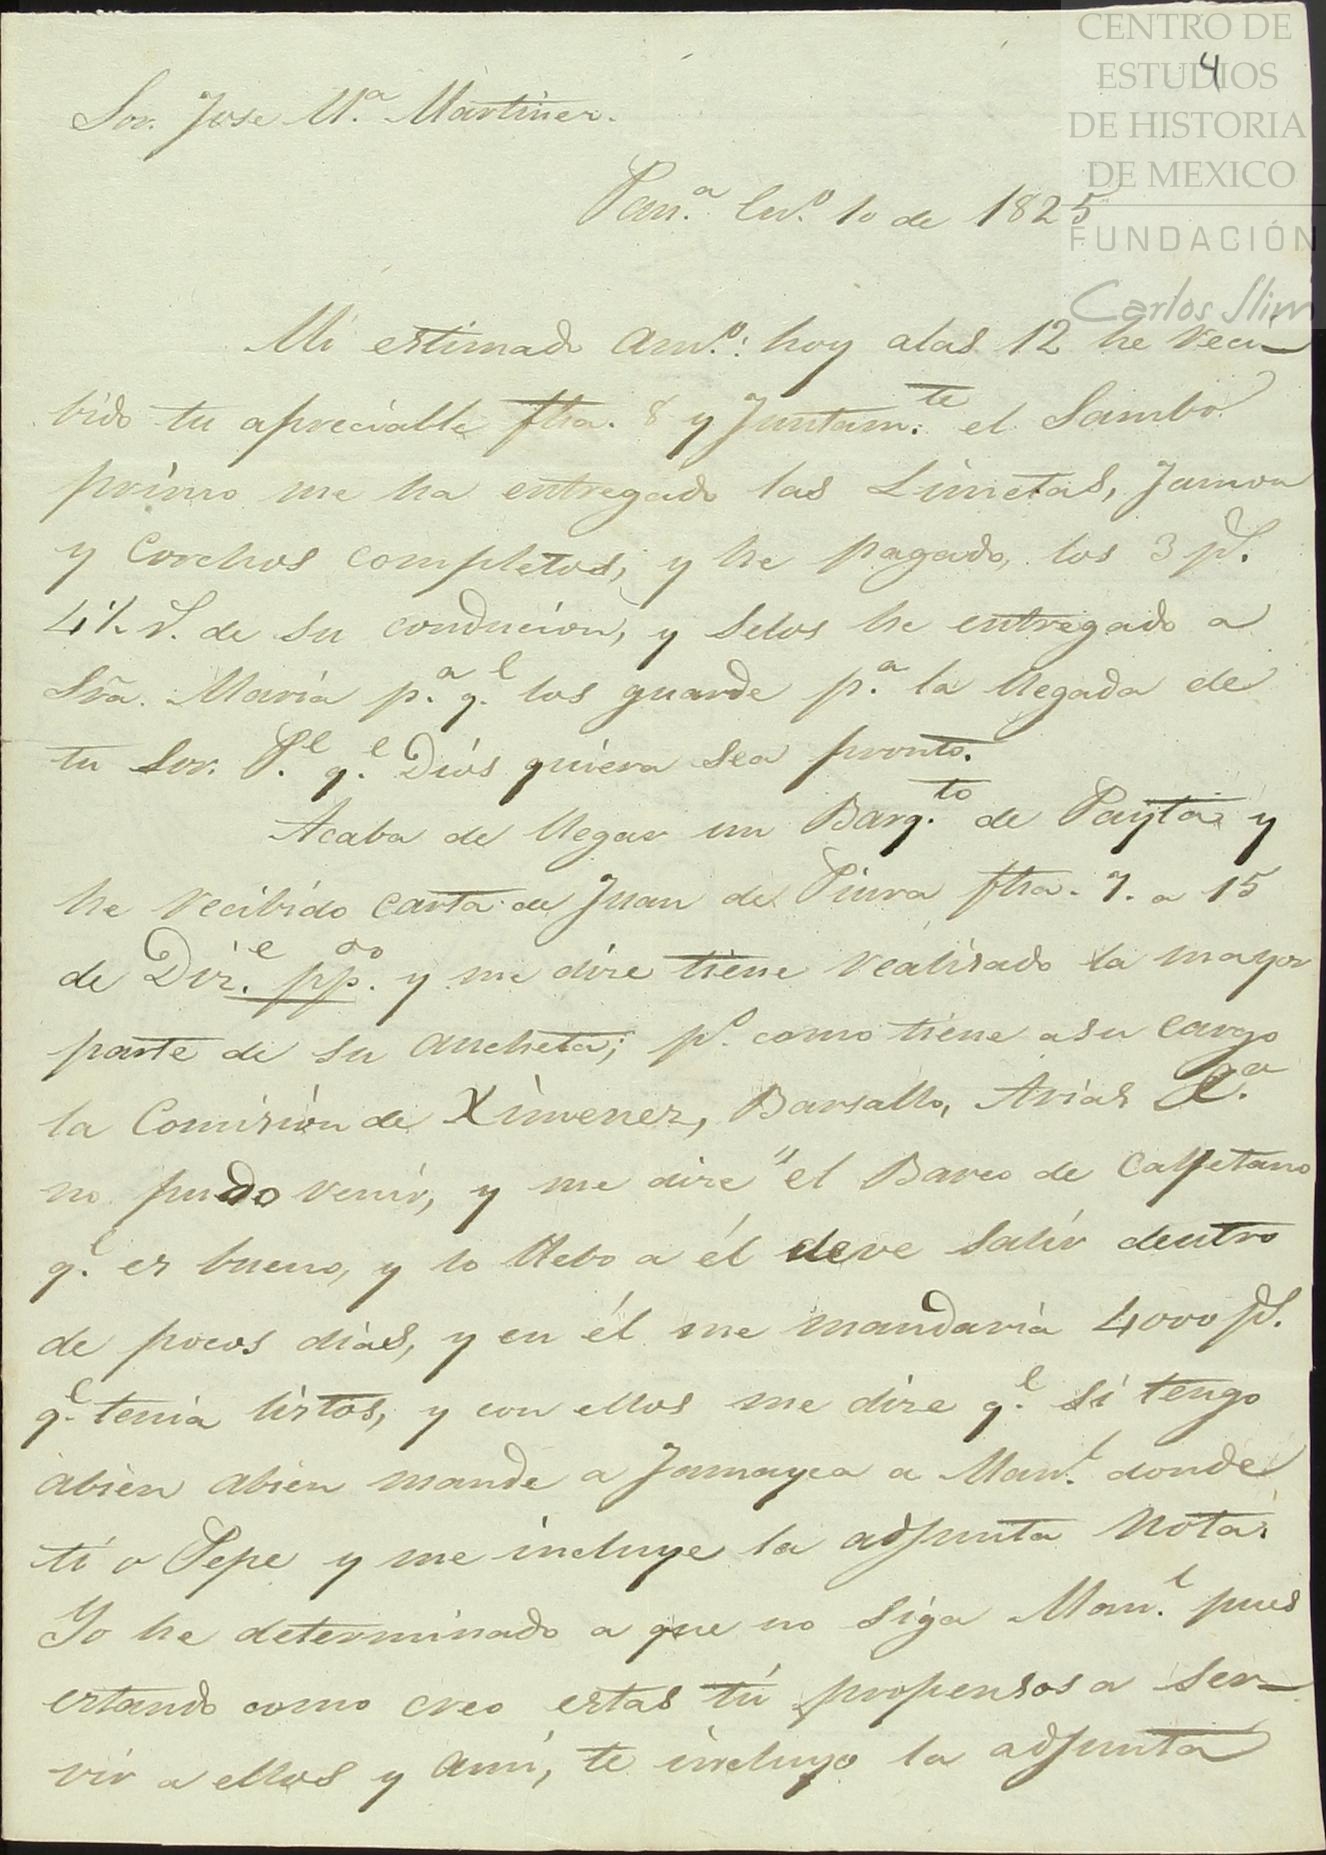 CENTRO DE
ESTUDIOS
DE HISTORIA
DE MEXICO
FUNDACIÓN
Carlos Slim
4
Sor. Jose M.a Martinez.
Pan.a En.o 10 de 1825
Mi estimado am.o: hoy alas 12 he reci-
bido tu apreciable fha. 8 y Juntam.te el Sambo
primo me ha entregado las Limetas, Jamon
y Corchos completos, y he pagado, los 3 ps.
4½ r. de su conducion, y selos he entregado a
Sra. Maria p.a q.e los guarde p.a la llegada de
tu Sor. P.e q.e Dios quiera sea pronto.
Acaba de llegar un Barq.to de Payta y
he recibido carta de Juan de Piura fha. 7. a 15
de Diz.e pp.o y me dize tiene realisado la mayor
parte de su ancheta; p.o como tiene a su cargo
la Comision de Ximenez, Barsallo, Arias &.a
no pudo venir, y me dize "el Barco de Cayetano
q.e es bueno, y lo llebo a él deve Salir dentro
de pocos dias, y en él me mandaria 4000 ps.
q.e tenia listos, y con ellos me dize q.e si tengo
abien abien mande a Jamayca a Man.l donde
ti o Pepe y me incluye la adjunta Nota.
Yo he determinado a que no siga Man.l pues
estando como creo estas tú propensos a ser-
vir a ellos y ami, te incluyo la adjunta